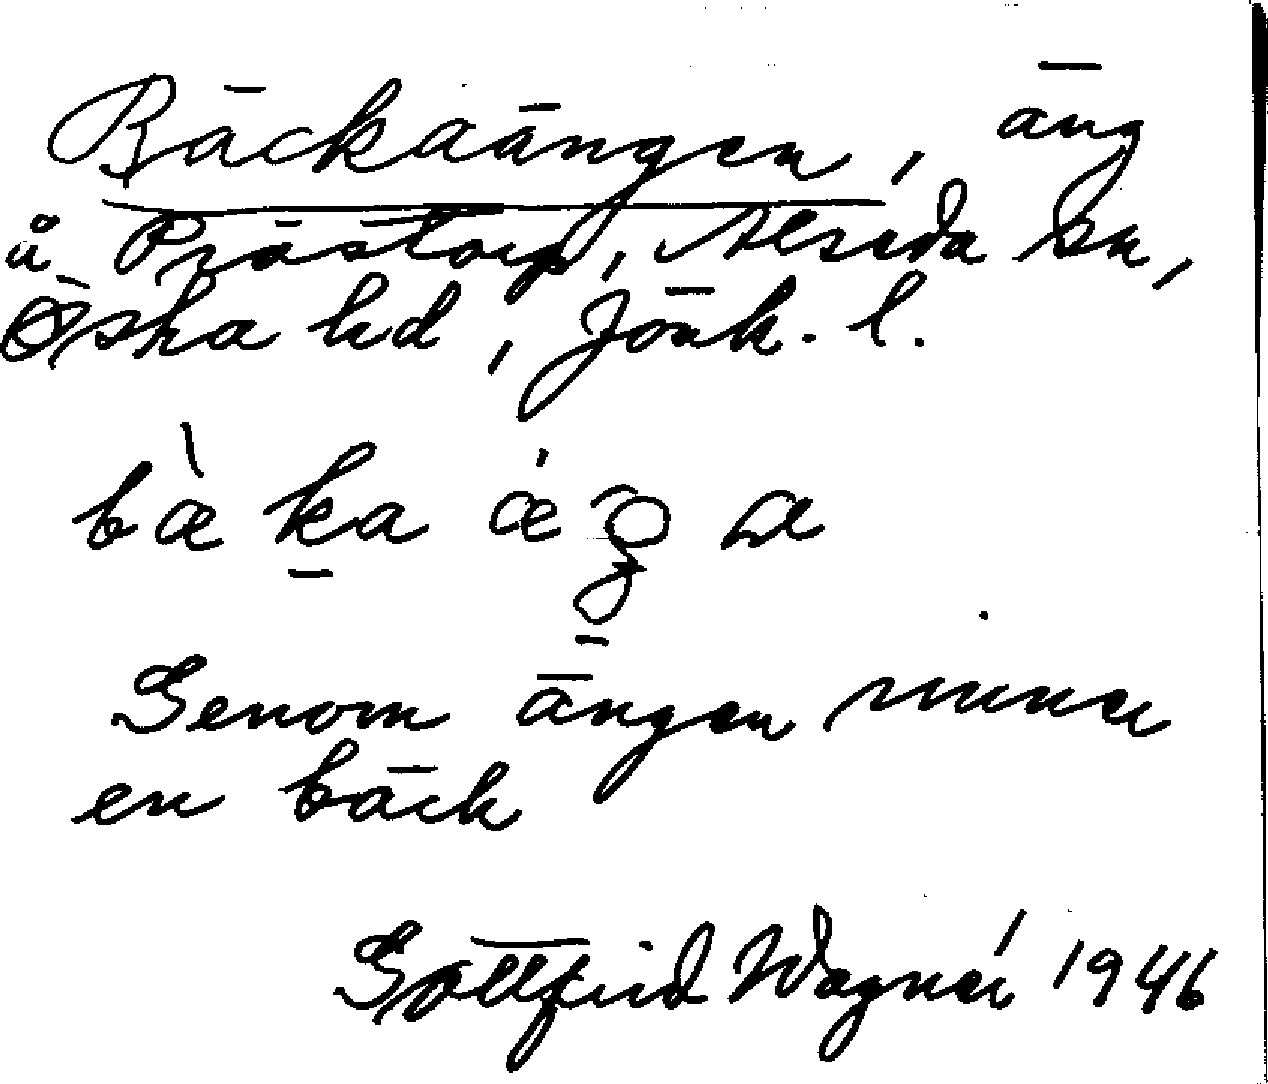 Bäckaängen, äng
å Prästorp, Alseda sn,
Östra hd, Jönk. l.
bàka ǽŋa
Genom ängen rinner
en bäck
Gottfrid Wagnér 1946